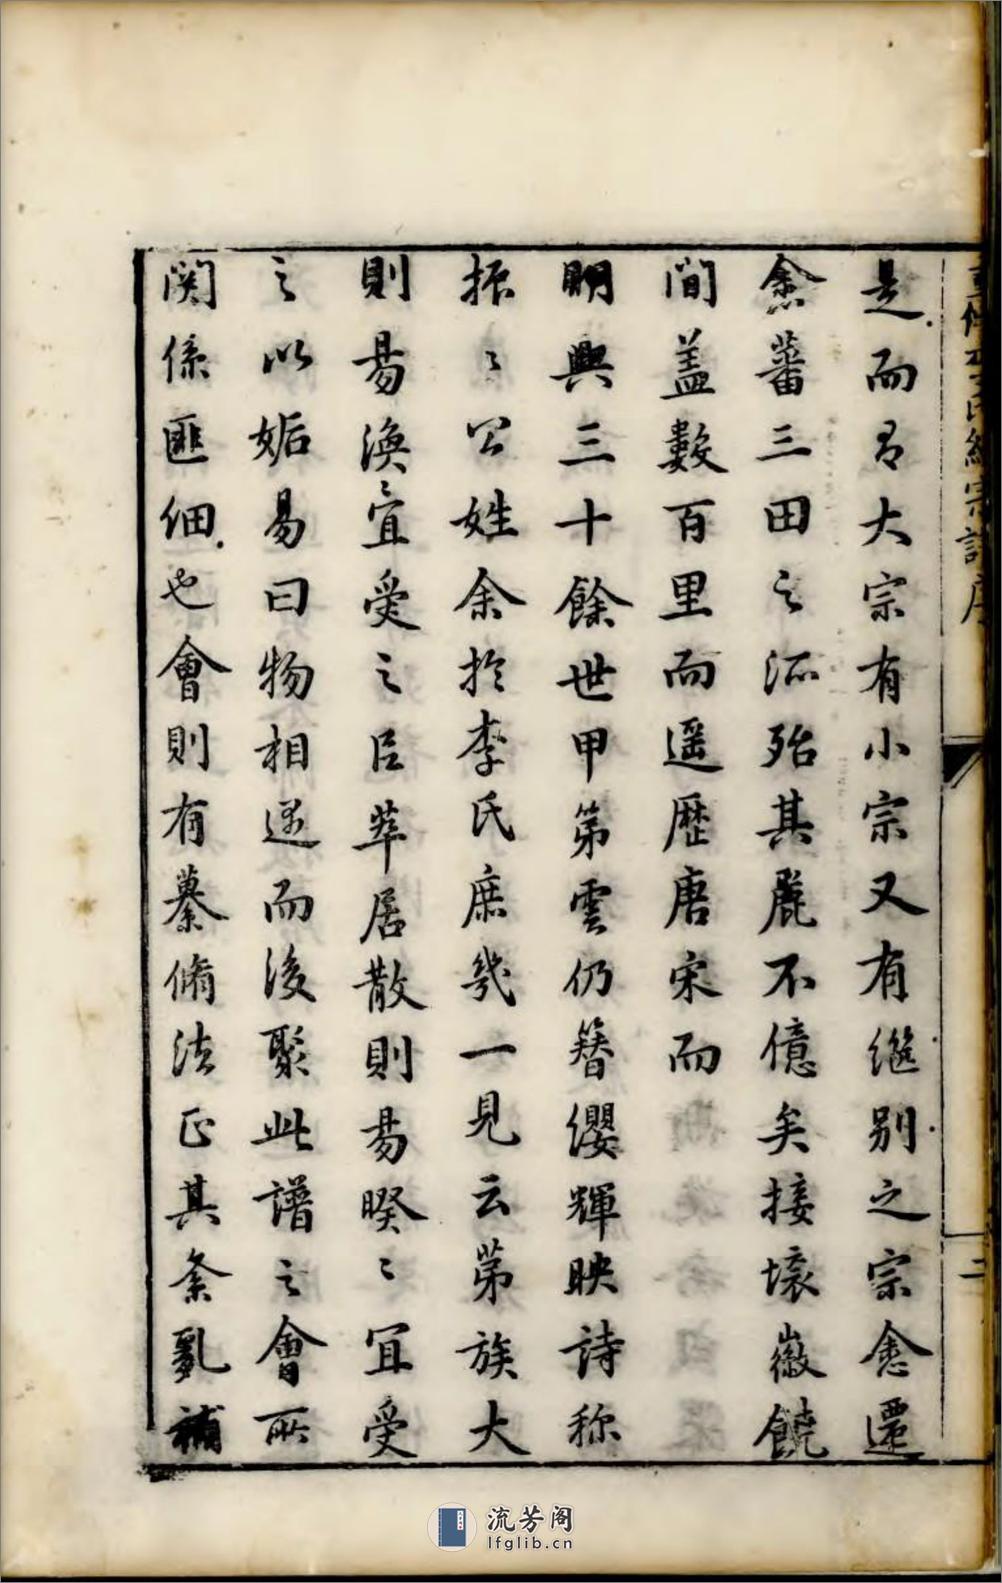 是而又大宗有小宗又有繼别之宗愈遷
愈蕃三田之派殆其麗不億矣接壤徽饒
間盖數百里而遥歷唐宋而
明興三十餘世甲第雲仍簪纓輝映詩称
振〻公姓余扵李氏庶幾一見云苐族大
則易渙〻宜受之㠯萃居散則易暌〻宜受
之以姤易曰物相遇而後聚此譜之會所
関係匪细也會則有纂脩法正其紊亂補
宗譜序
二
流芳阁
lfglib.cn